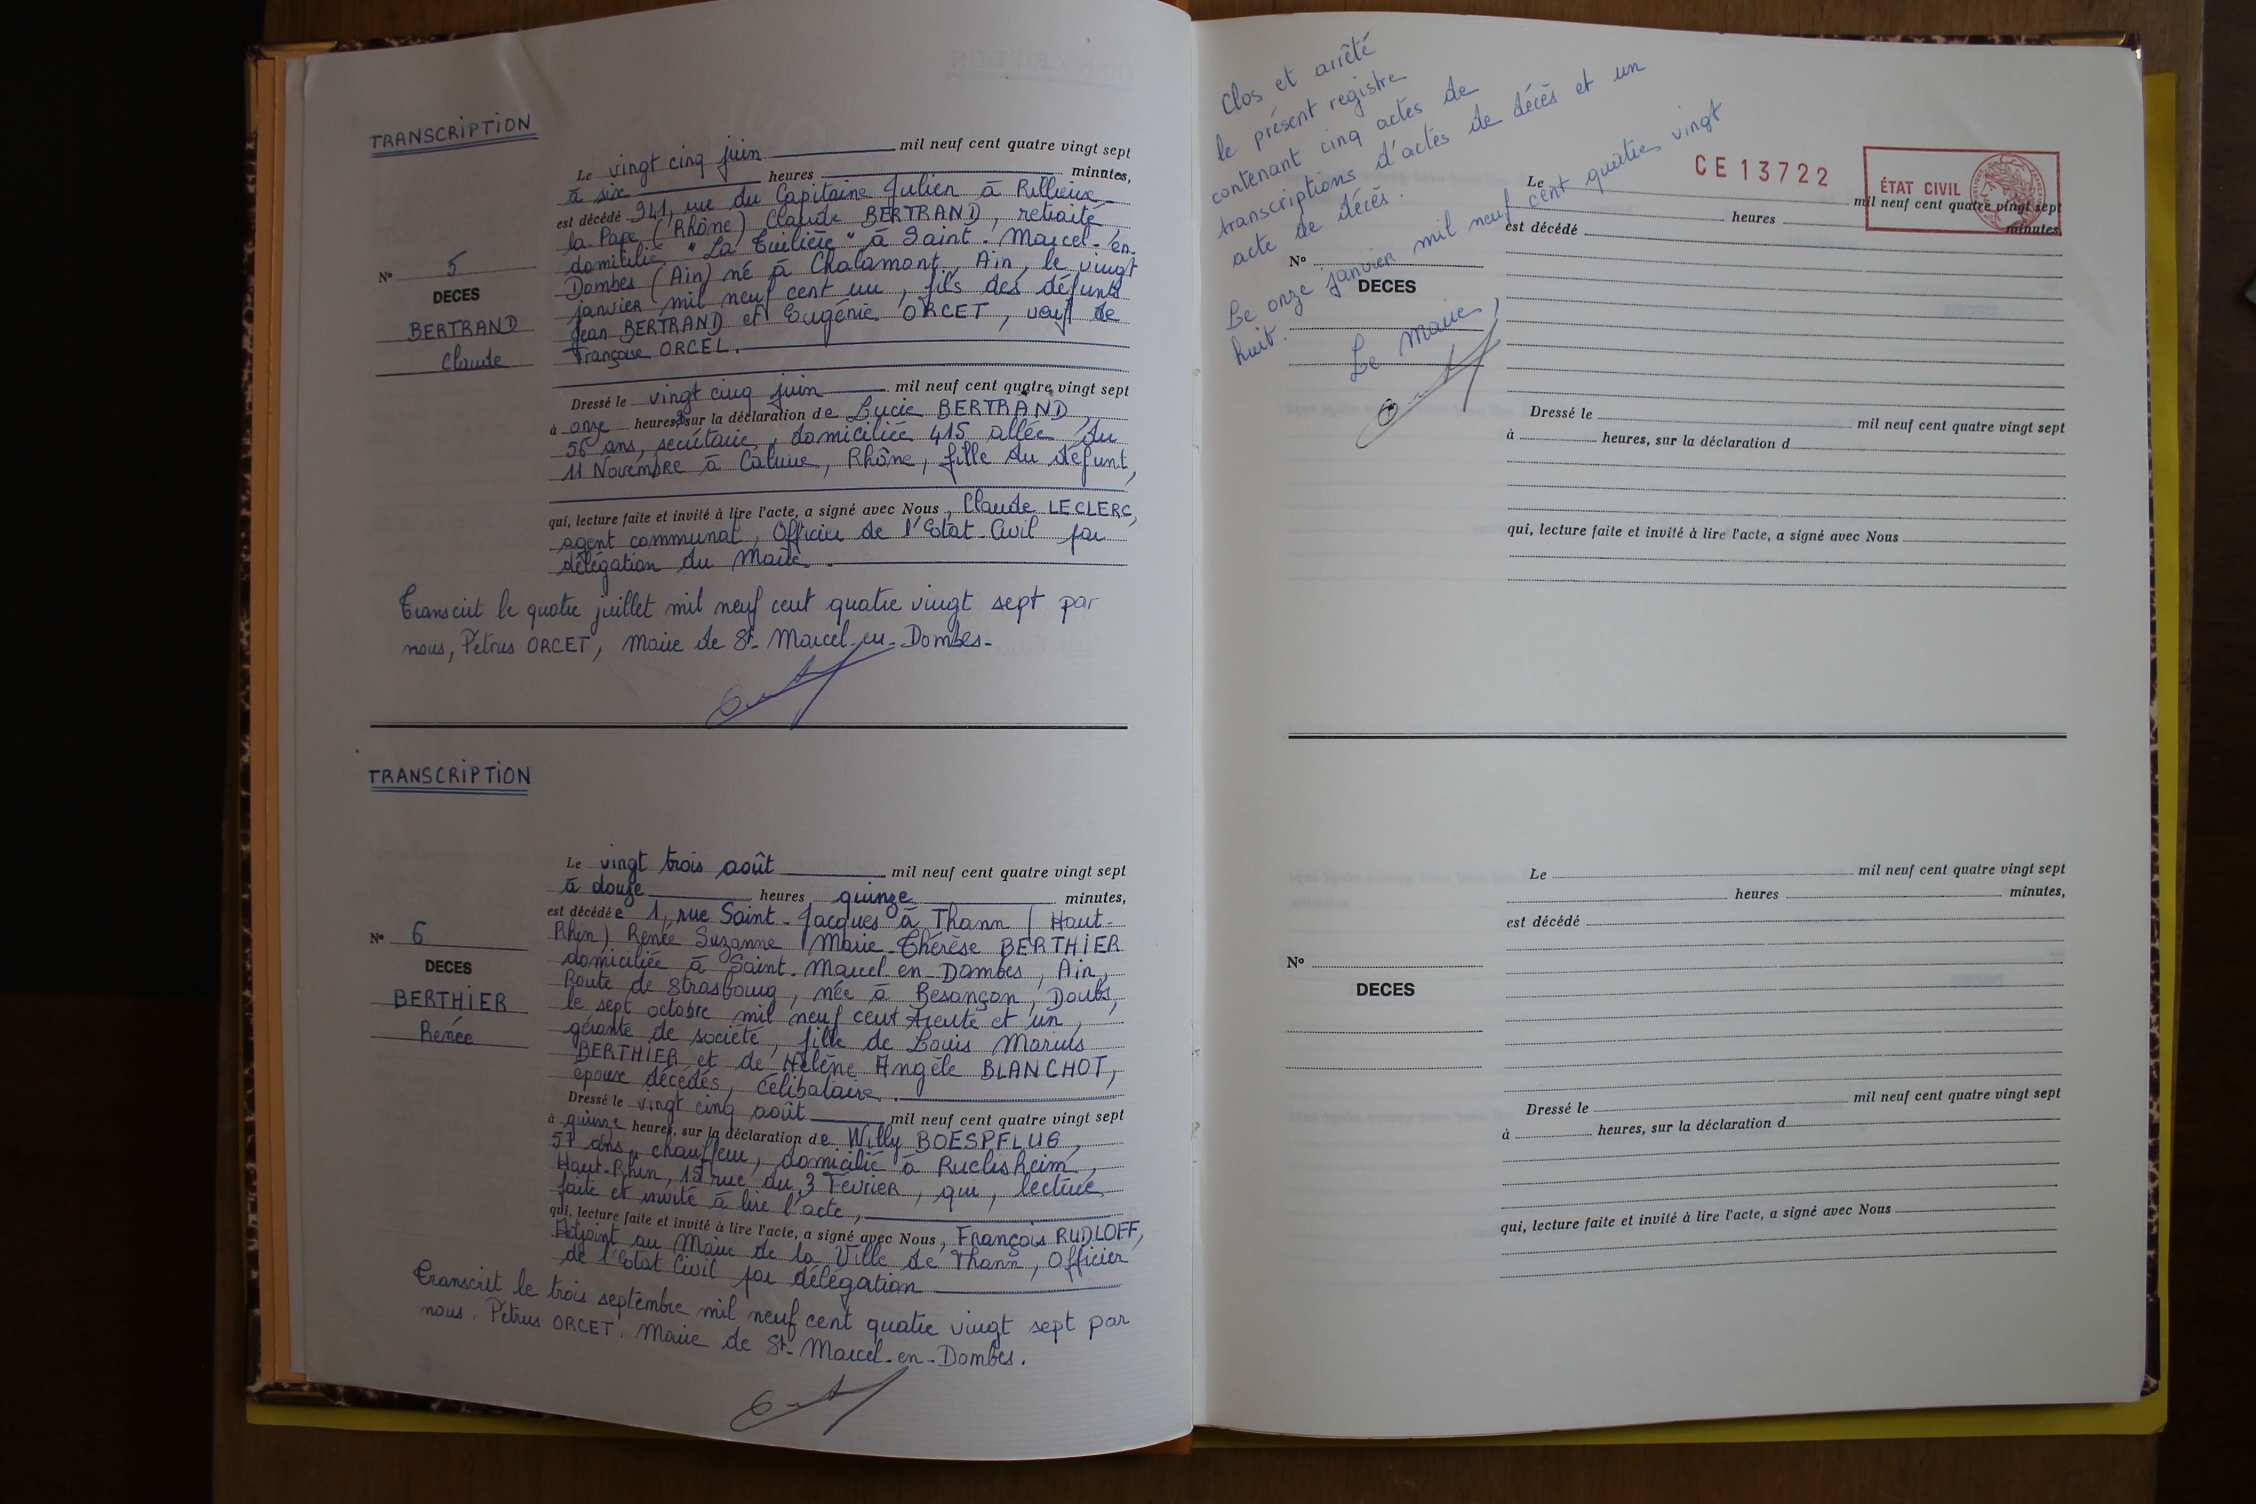 TRANSCRIPTION
Le vingt cinq juin mil neuf cent quatre vingt sept
à six heures minutes,
est décédé 941, rue du Capitaine Julien à Rillieux
la Pape (Rhône) Claude BERTRAND, retraité
domicilié "La Tuilière" à Saint-Marcel-en-
Dombes (Ain) né à Chalamont, Ain, le vingt
janvier mil neuf cent un, fils des défunts
Jean BERTRAND et Eugénie ORCET, veuf de
Françoise ORCEL.
N° 5
DECES
BERTRAND
Claude
Dressé le vingt cinq juin mil neuf cent quatre vingt sept
à onze heures, sur la déclaration de Lucie BERTRAND,
56 ans, secrétaire, domiciliée 415 allée du
11 Novembre à Caluire, Rhône, fille du défunt,
qui, lecture faite et invité à lire l'acte, a signé avec Nous, Claude LECLERC,
agent communal, Officier de l'Etat-Civil par
délégation du Maire.
Transcrit le quatre juillet mil neuf cent quatre vingt sept par
nous, Pétrus ORCET, Maire de St-Marcel-en-Dombes-
TRANSCRIPTION
Le vingt trois août mil neuf cent quatre vingt sept
à douze heures quinze minutes,
est décédée 1, rue Saint-Jacques à Thann (Haut-
Rhin) Renée Suzanne Marie-Thérèse BERTHIER
domiciliée à Saint-Marcel en-Dombes, Ain,
Route de Strasbourg, née à Besançon, Doubs,
le sept octobre mil neuf cent trente et un,
gérante de société, fille de Louis Marius
BERTHIER et de Hélène Angèle BLANCHOT,
époux décédés, célibataire.
N° 6
DECES
BERTHIER
Renée
Dressé le vingt cinq août mil neuf cent quatre vingt sept
à quinze heures, sur la déclaration de Willy BOESPFLUG,
57 ans, chauffeur, domicilié à Ruelisheim,
Haut-Rhin, 15 rue du 3 Février, qui, lecture
faite et invité à lire l'acte,
qui, lecture faite et invité à lire l'acte, a signé avec Nous, François RUDLOFF,
Adjoint au Maire de la Ville de Thann, Officier
de l'Etat Civil par délégation
Transcrit le trois septembre mil neuf cent quatre vingt sept par
nous. Pétrus ORCET. Maire de St-Marcel-en-Dombes.
Clos et arrêté
le présent registre
contenant cinq actes de
transcriptions d'actes de décès et un
acte de décès.
Le onze janvier mil neuf cent quatre vingt
huit.
Le Maire,
CE 13722
ÉTAT CIVIL
Le mil neuf cent quatre vingt sept
heures minutes,
est décédé
N°
DECES
Dressé le mil neuf cent quatre vingt sept
à heures, sur la déclaration d
qui, lecture faite et invité à lire l'acte, a signé avec Nous
Le mil neuf cent quatre vingt sept
heures minutes,
est décédé
N°
DECES
Dressé le mil neuf cent quatre vingt sept
à heures, sur la déclaration d
qui, lecture faite et invité à lire l'acte, a signé avec Nous